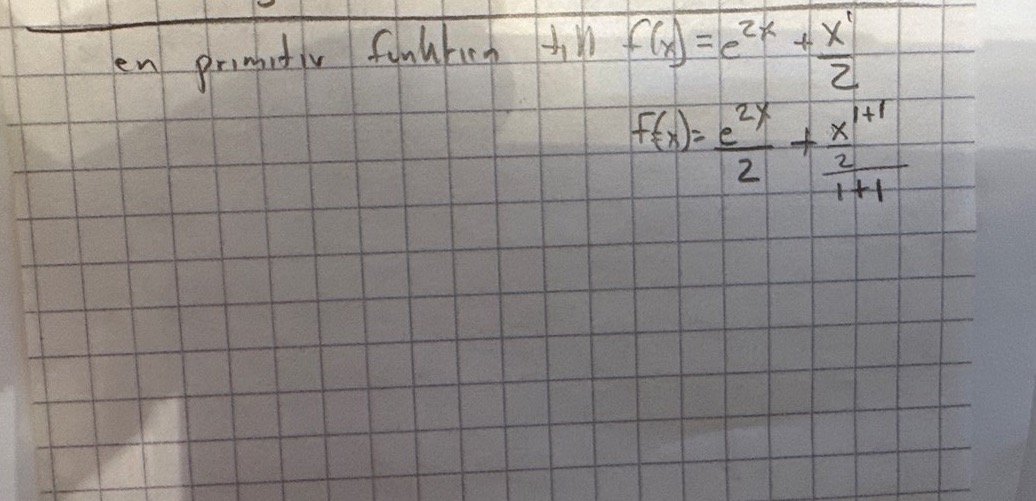 en primitiv funktion till f(x) = e^{2x} + \frac{x^1}{2}
f(x) = \frac{e^{2x}}{2} + \frac{\frac{x^{1+1}}{2}}{1+1}